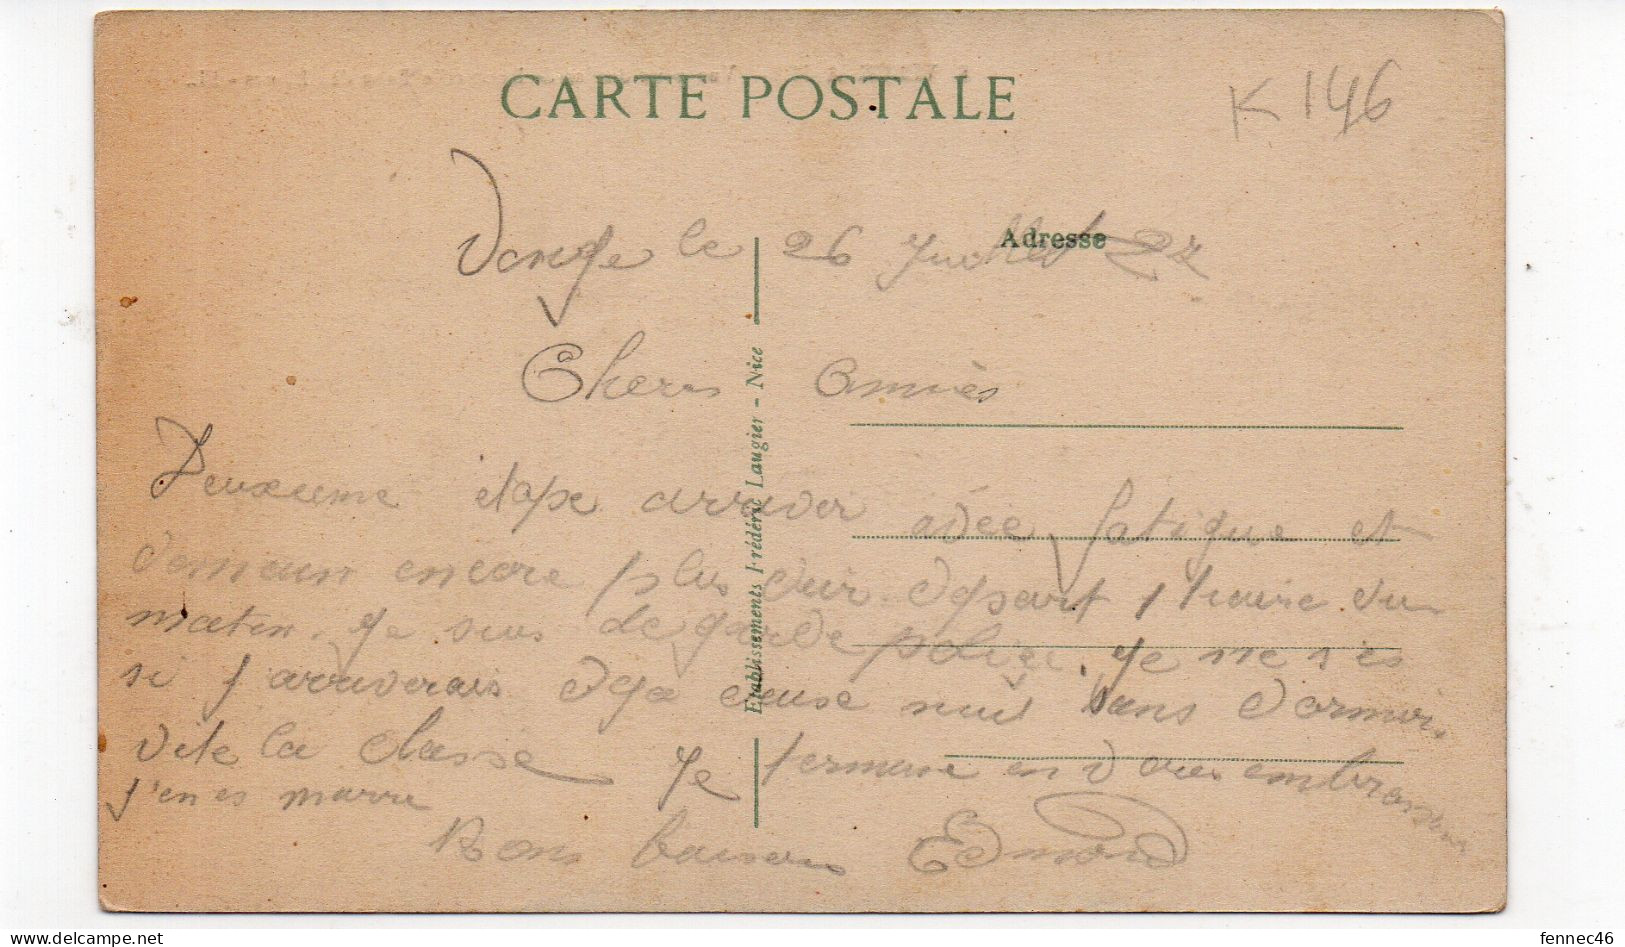 CARTE POSTALE
K 146
le 26 Juillet 27
Adresse
Chers Amies
Deuxieme etape arriver asée fatigue et
demain encore plus dur. depart 1 heure du
matin. Je suis de garde police. Je ne s'es
si j'arriverais deja creuse nuit sans dormir.
vite la classe Je termine en vous embrassan
j'en es marre
Bons baisers Edmond
Etablissements Frédéric Laugier - Nice
fennec46